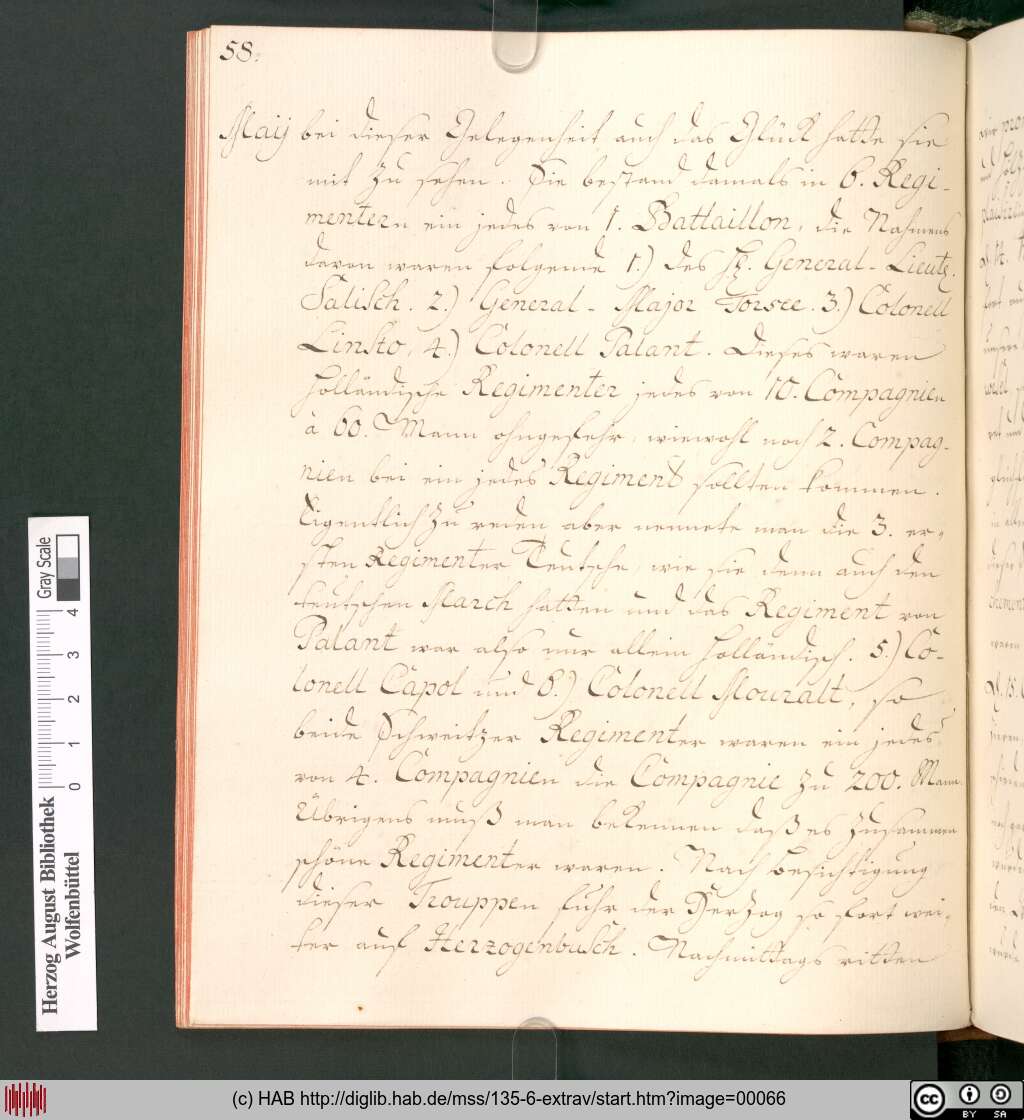 58.
Maij bei dieser Gelegenheit auch das Glück hatte sie
mit zu sehen. Sie bestand damals in 6. Regi-
mentern ein jedes von 1. Battaillon, die Nahmens
davon waren folgende 1.) des H. General-Lieute.
Salisch. 2.) General-Major Torsee. 3.) Colonell
Linsto, 4.) Colonell Palant. Dieses waren
holländische Regimenter jedes von 10. Compagnien
à 60. Mann ohngefehr, wiewohl noch 2. Compag-
nien bei ein jedes Regiment sollten kommen.
Eigentlich zu reden aber nennete man die 3. er-
sten Regimenter Teutsche, wie sie denn auch den
teutschen March hatten und das Regiment von
Palant war also nur allein holländisch. 5.) Co-
lonell Capol und 6.) Colonell Mouralt, so
beide Schweitzer Regimenter waren ein jedes
von 4. Compagnien die Compagnie zu 200. Mann.
Übrigens muß man bekennen daß es zusammen
schöne Regimenter waren. Nach Besichtigung
dieser Trouppen fuhr der Herzog so fort wei-
ter auf Herzogenbusch. Nachmittags ritten
Gray Scale
0 1 2 3 4
Herzog August Bibliothek
Wolfenbüttel
(c) HAB http://diglib.hab.de/mss/135-6-extrav/start.htm?image=00066
cc BY SA